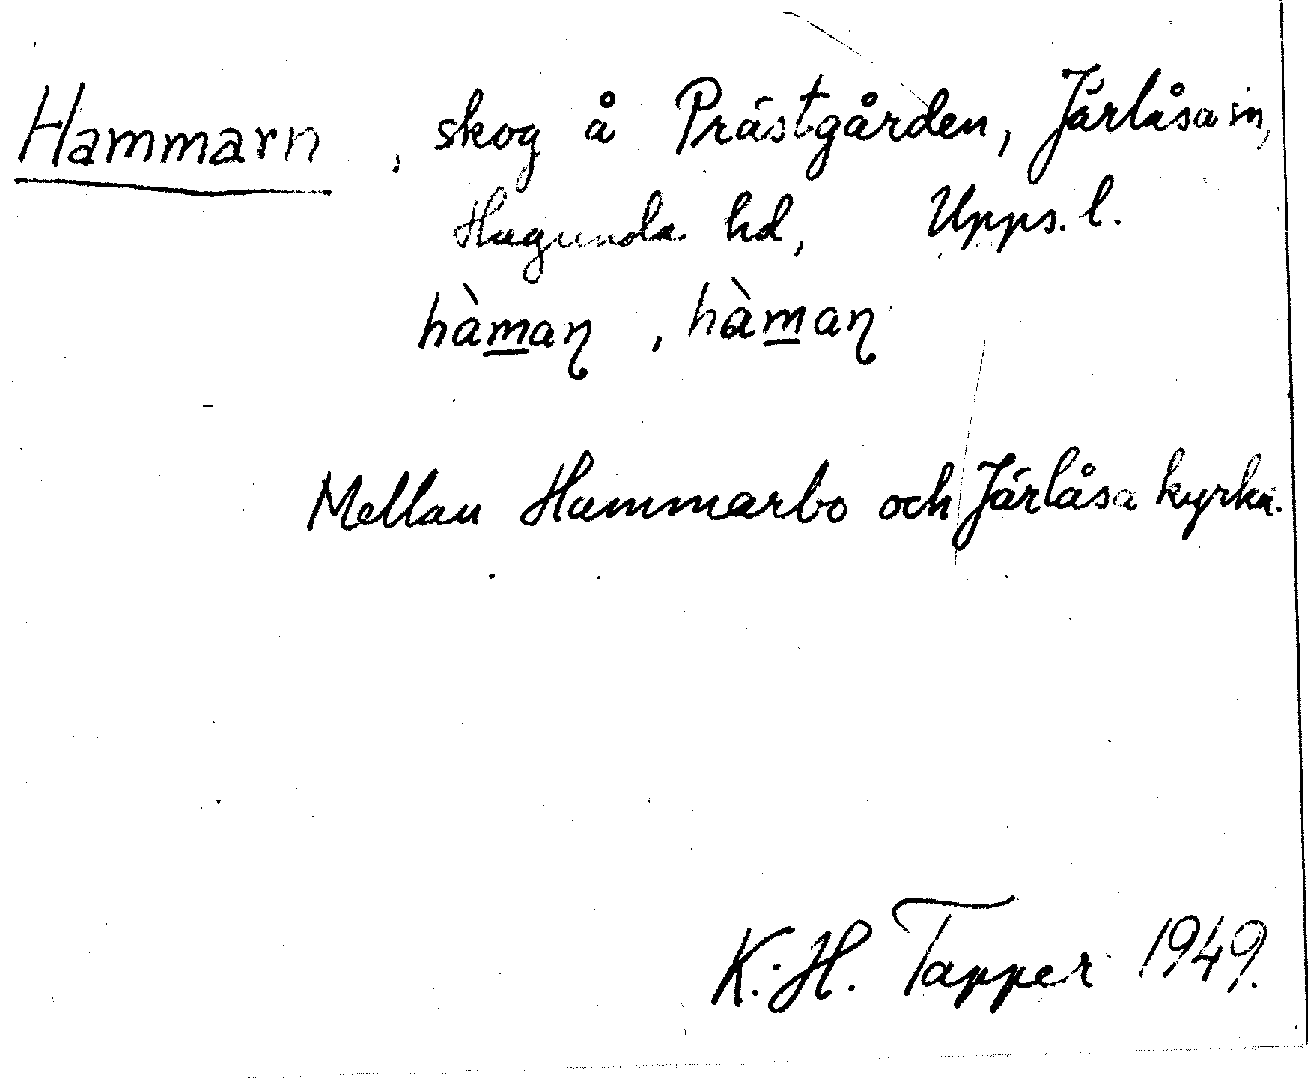 Hammarn, skog å Prästgården, Järlåsa sn,
Hagunda hd, Upps. l.
hàm̲aɳ, hàm̲aɳ
Mellan Hammarbo och Järlåsa kyrka.
K.-H. Tapper 1949.